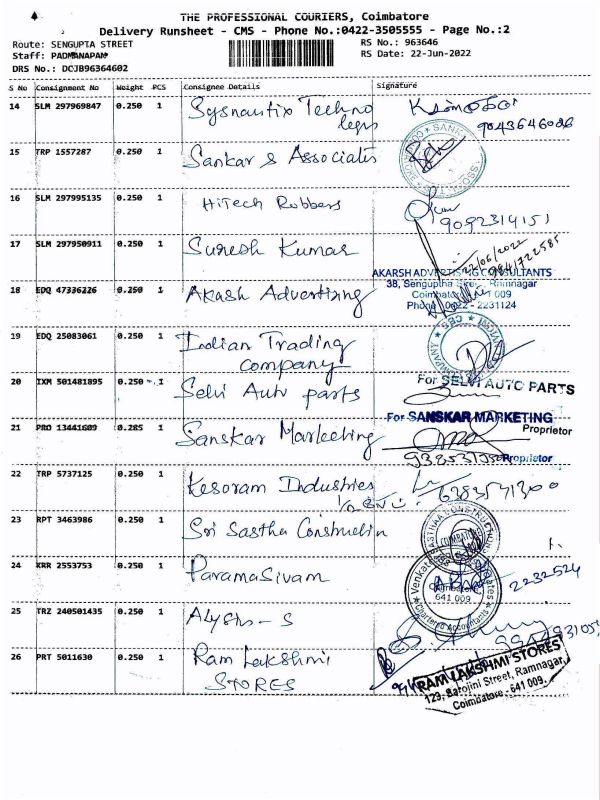 THE PROFESSIONAL COURIERS, Coimbatore
Delivery Runsheet - CMS - Phone No.:0422-3505555 - Page No.:2
Route: SENGUPTA STREET
Staff: PADMANAPAN
DRS No.: DCJB96364602
RS No.: 963646
RS Date: 22-Jun-2022
S No Consignment No Weight PCS Consignee Details Signature
14 SLM 297969847 0.250 1 Sysnautix Techno
legis
9043646086
15 TRP 1557287 0.250 1 Sankar & Associates
16 SLM 297995135 0.250 1 HiTech Rubbers
9092314151
17 SLM 297950911 0.250 1 Suresh Kumar
22/06/2022
AKARSH ADVERTISING CONSULTANTS
38, Senguptha Street, Ramnagar
18 EDQ 47336226 0.250 1 Akash Advertizing
Coimbatore 641 009
Phone: 0422 - 2231124
19 EDQ 25083061 0.250 1 Indian Trading
company
20 IXM 501481895 0.250 1 Selvi Auto parts
For SELVI AUTO PARTS
21 PRO 13441609 0.285 1 Sanskar Marketing
For SANSKAR MARKETING
Proprietor
Proprietor
22 TRP 5737125 0.250 1 Kesoram Industries
6383541300
23 RPT 3463986 0.250 1 Sri Sastha Construction
24 KRR 2553753 0.250 1 Paramasivam
641 009
Chartered Accountants
2232524
25 TRZ 240501435 0.250 1
26 PRT 5011630 0.250 1 Ram Lakshmi
STORES
RAM LAKSHMI STORES
129, Sarojini Street, Ramnagar,
Coimbatore - 641 009.